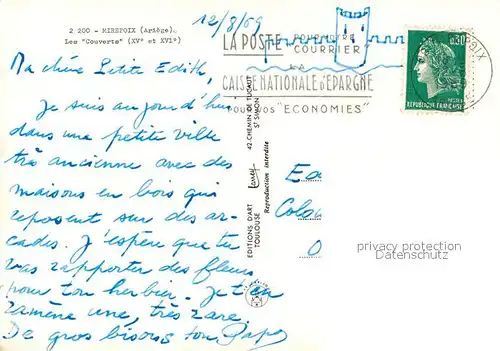 2 200 - MIREPOIX (Ariège).
Les "Couverts" (XVe et XVIe)
12/8/69
Ma chère Petite Edith,
Je suis aujourd'hui
dans une petite ville
très ancienne avec des
maisons en bois qui
reposent sur des ar-
cades. J'espère que tu
vas rapporter des fleurs
pour ton herbier. Je t'en
ramène une, très rare.
De gros bisous ton Papa
LA POSTE POUR VOTRE
COURRIER
LA
CAISSE NATIONALE d'EPARGNE
POUR VOS "ECONOMIES"
0,30
POSTES
REPUBLIQUE FRANÇAISE
EDITIONS D'ART
TOULOUSE
42, CHEMIN DE TUCAUT
ST-SIMON
Reproduction interdite
privacy protection
Datenschutz